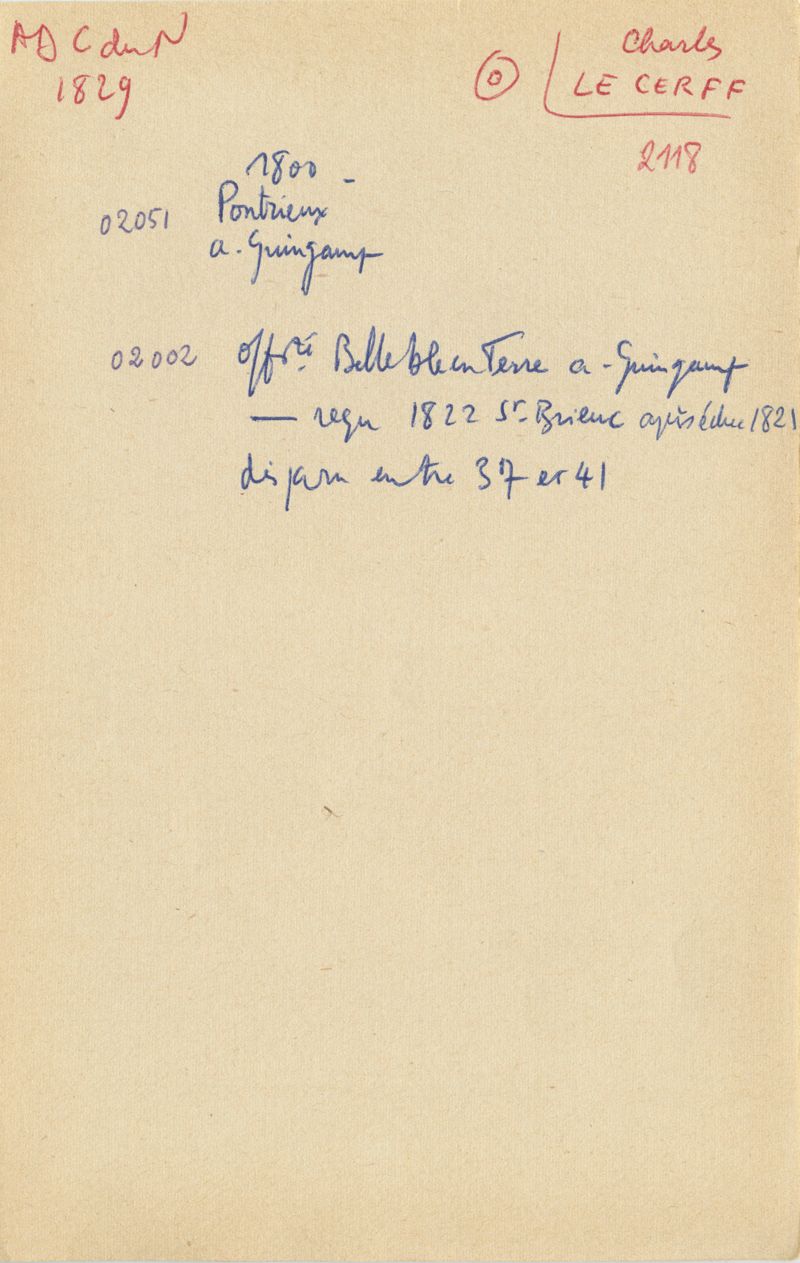 AD C du N
1829
Charles
LE CERFF
2118
1800 -
02051 Pontrieux
a. Guingamp
02002 off. Belle Isle en Terre a - Guingamp
— reçu 1822 St. Brieuc après échec 1821
disparu entre 37 et 41